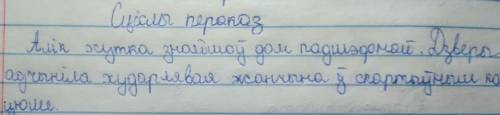 Сціслы пераказ
Алік хутка знайшоў дом падшэфнай. Дзверы
адчыніла хударлявая жанчына ў спартыўным ка
цюме.